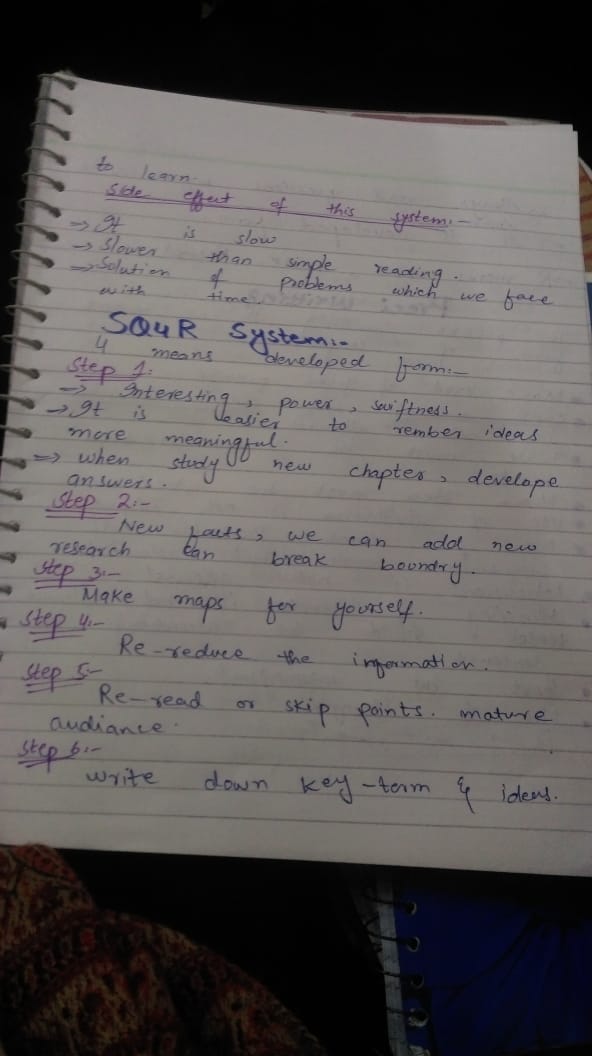 to learn.
Side effect of this system:-
→ It is slow
→ Slower than simple reading.
→ Solution of problems which we face
with time.
SQ4R System:-
4 means developed form:-
Step 1:
→ Interesting, power, swiftness.
→ It is easier to rember ideas
more meaningful.
⇒ when study new chapter, develope
answers.
Step 2:-
New facts, we can add new
research can break boundry.
Step 3:-
Make maps for yourself.
Step 4:-
Re-reduce the information.
Step 5:-
Re-read or skip points. mature
audiance.
Step 6:-
write down key-term & ideas.